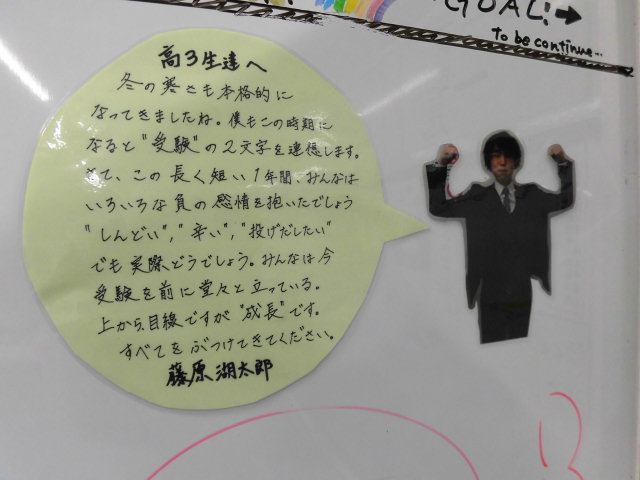 GOAL!→
to be continue...
高3生達へ
冬の寒さも本格的に
なってきましたね。僕もこの時期に
なると"受験"の2文字を連想します。
さて、この長く短い1年間、みんなは
いろいろな負の感情を抱いたでしょう
"しんどい","辛い","投げだしたい"
でも実際どうでしょう。みんなは今
受験を前に堂々と立っている。
上から目線ですが"成長"です。
すべてをぶつけてきてください。
藤原湖太郎